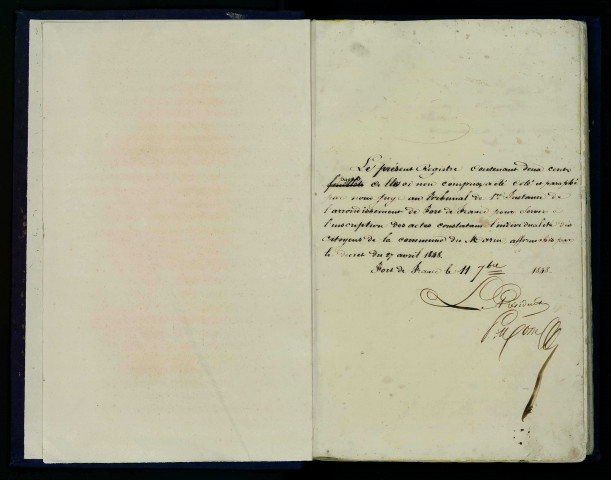 Le présent Registre contenant deux cents
feuillets celle ci non comprise a été coté et paraphé
par nous juge au Tribunal de 1re Instance de
l'arrondissement de Fort de France pour servir à
l'inscription des actes constatant l'individualité des
citoyens de la commune du Marin, affranchis par
le Decret du 27 avril 1848.
Fort de France le 11 7bre 1848.
Le Président